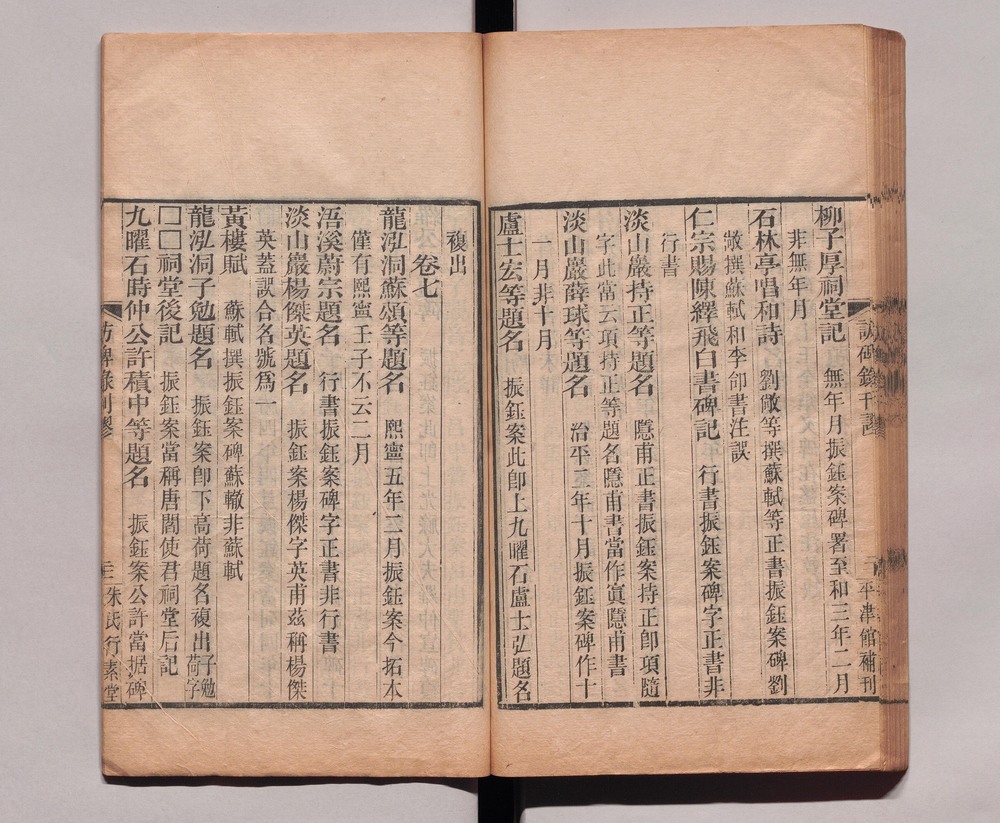 柳子厚祠堂記　無年月振鈺案碑署至和三年二月
非無年月
石林亭唱和詩　劉敞等撰蘇軾等正書振鈺案碑劉
敞撰蘇軾和李郃書注誤
仁宗賜陳繹飛白書碑記　行書振鈺案碑字正書非
行書
淡山巖持正等題名　隱甫正書振鈺案持正卽項隨
字此當云項持正等題名隱甫書當作眞隱甫書
淡山巖薛球等題名　治平三年十月振鈺案碑作十
一月非十月
盧士宏等題名　振鈺案此卽上九曜石盧士弘題名
複出
卷七
龍泓洞蘇頌等題名　熙寧五年二月振鈺案今拓本
僅有熙寧壬子不云二月
浯溪蔚宗題名　行書振鈺案碑字正書非行書
淡山巖楊傑英題名　振鈺案楊傑字英甫茲稱楊傑
英蓋誤合名號爲一
黃樓賦　蘇軾撰振鈺案碑蘇轍非蘇軾
龍泓洞子勉題名　振鈺案卽下高荷題名複出子勉荷字
□□祠堂後記　振鈺案當稱唐閻使君祠堂后記
九曜石時仲公許積中等題名　振鈺案公許當据碑
訪碑錄刊謬
三
朱氏行素堂
平津館補刊